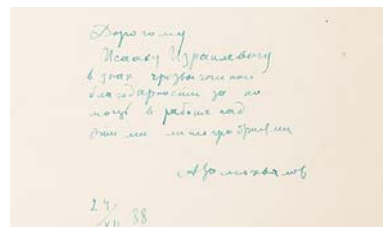 Дорогому
Исааку Израилевичу
в знак чрезвычайной
благодарности за по
мощь в работе над
этими литографиями
АСамохвалов
24/XII 38